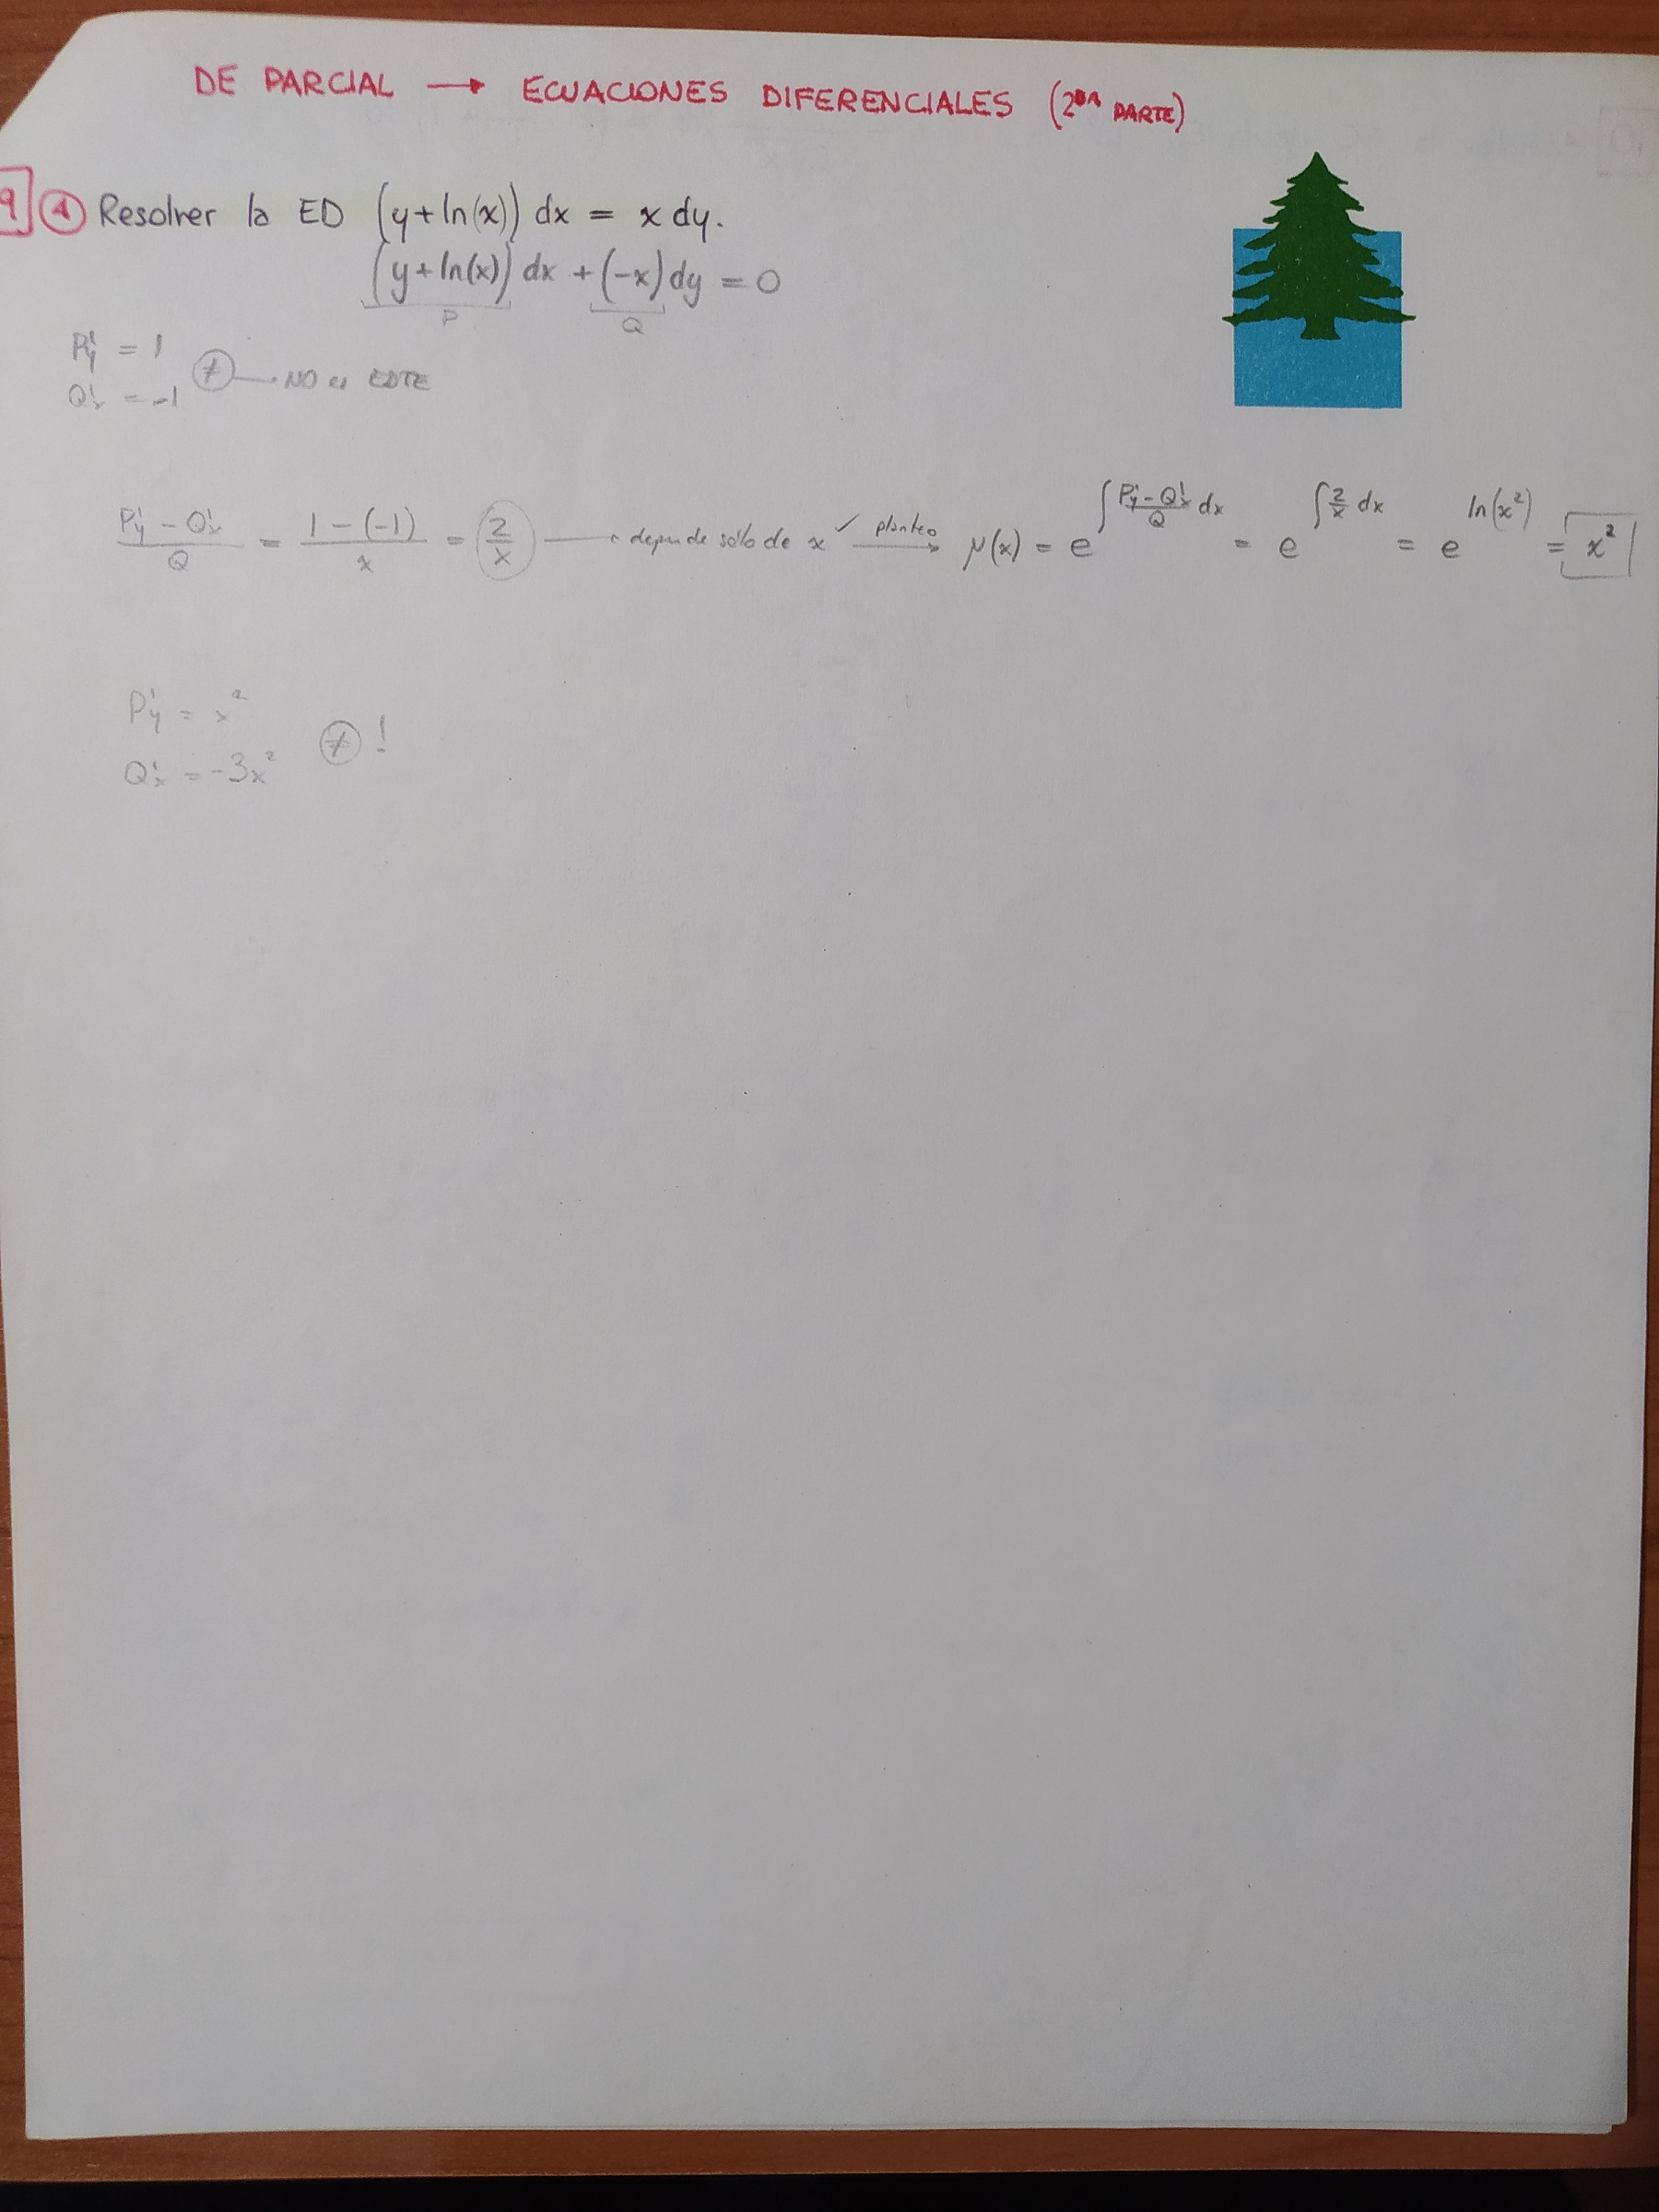 DE PARCIAL → ECUACIONES DIFERENCIALES (2DA PARTE)
9 1 Resolver la ED (y+ln(x)) dx = x dy.
(y+ln(x)) dx + (-x) dy = 0
P Q
P'y = 1
Q'x = -1 ≠ → NO es EDTE
(P'y - Q'x)/Q = (1-(-1))/x = 2/x → depende sólo de x ✓ planteo → μ(x) = e^(∫ (P'y - Q'x)/Q dx) = e^(∫ 2/x dx) = e^(ln(x²)) = x²
P'y = x²
Q'x = -3x² ≠ !